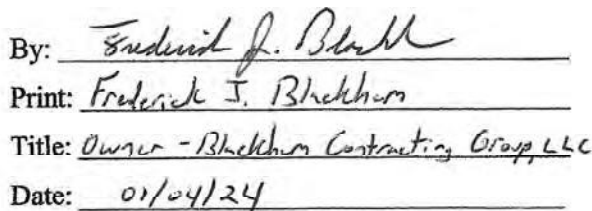 By: Frederick J. Blackham
Print: Frederick J. Blackham
Title: Owner - Blackham Contracting Group, LLC
Date: 01/04/24